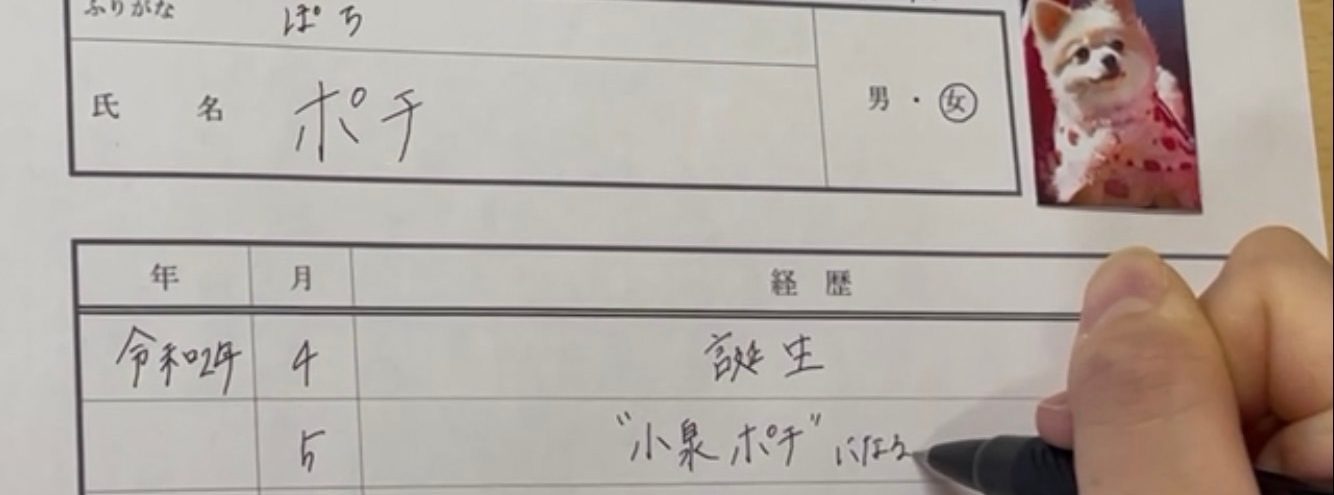 ふりがな ぽち
氏 名 ポチ 男・女
年 月 経 歴
令和2年 4 誕生
5 "小泉ポチ"になる